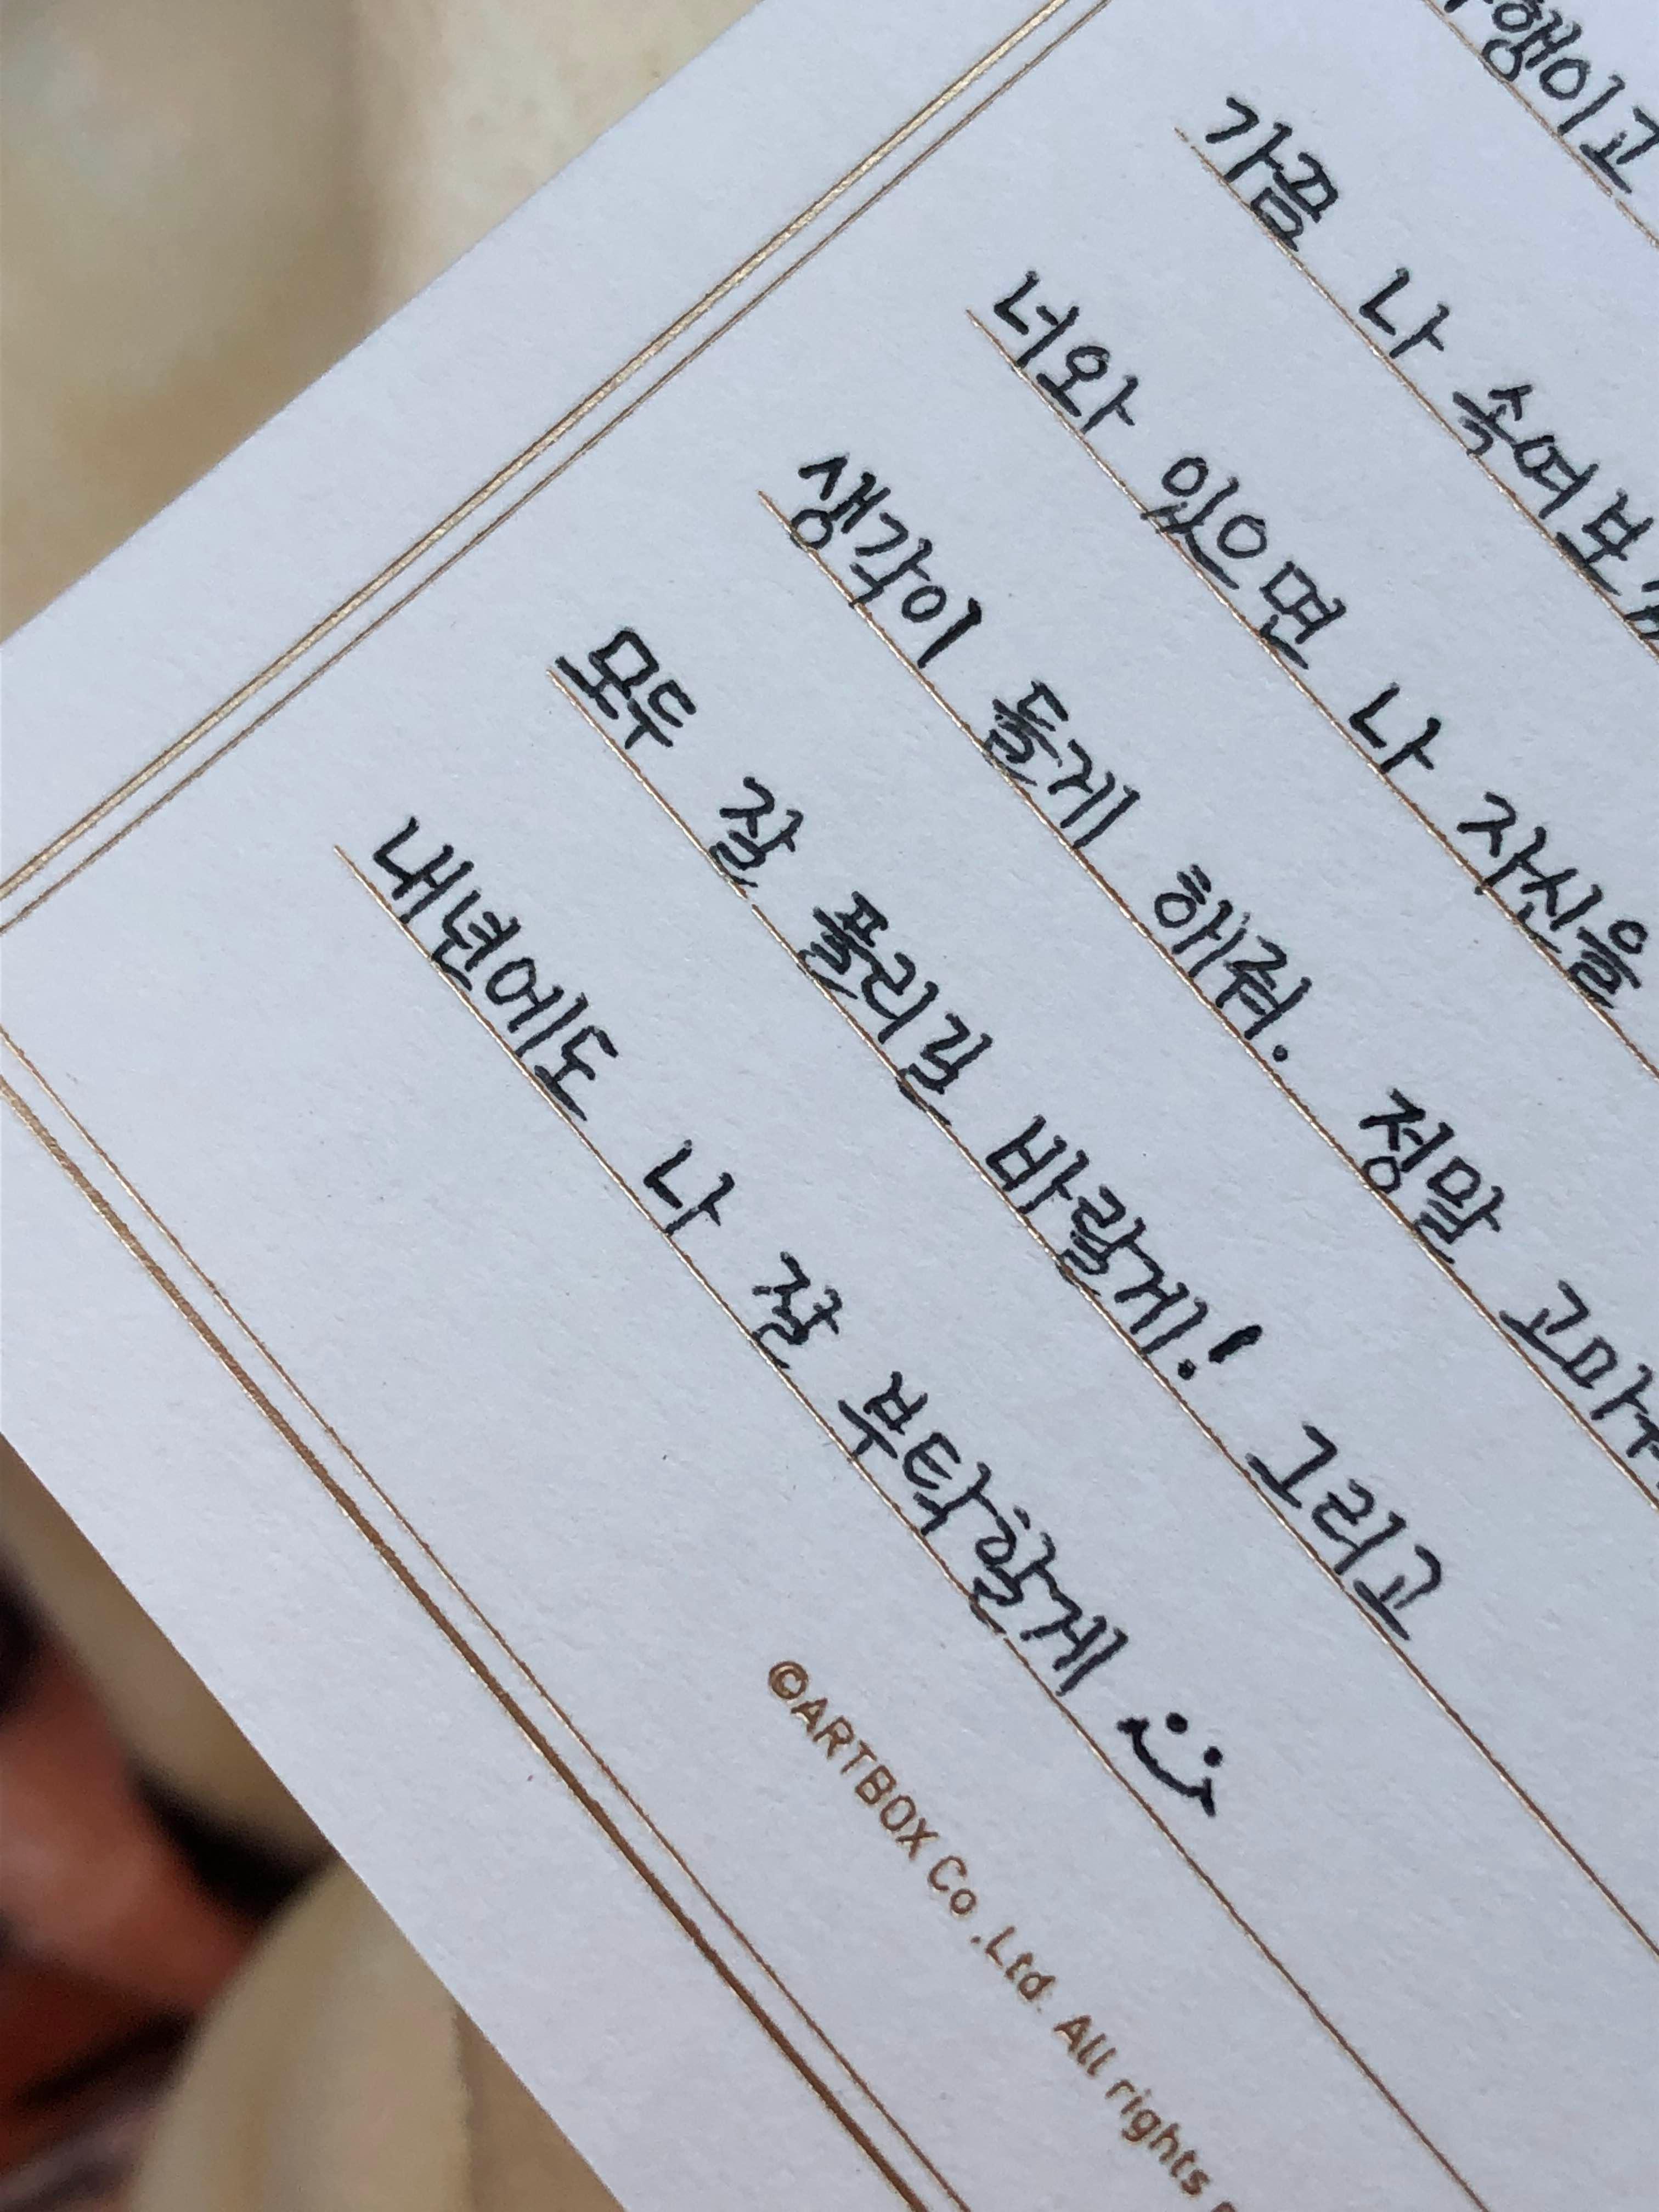 행이고
가끔 나 속여보
너와 있으면 나 자신을
생각이 들게 해줘. 정말 고마
모두 잘 풀리길 바랄게! 그리고
내년에도 나 잘 부탁할게
©ARTBOX Co.,Ltd. All rights